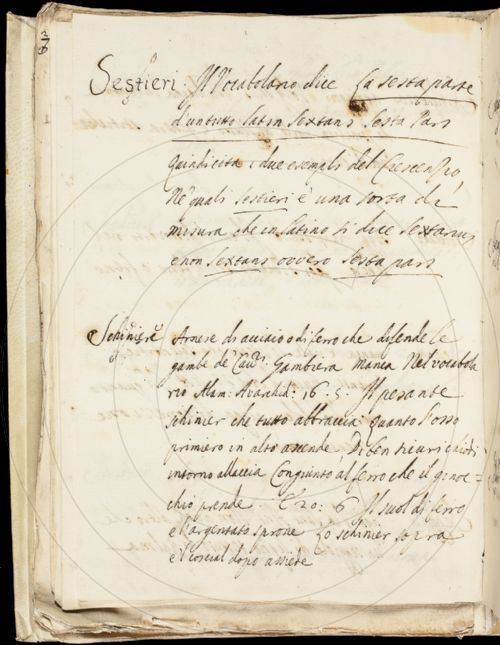 Sestieri. Il Vocabolario dice La sesta parte
d'un tutto latin Sextans Sesta Pars
Quindi cita i due esempli del Crescenzio
Ne' quali Sestieri è una sorta di
misura che in latino si dice Sextarius
e non Sextans ovvero Sesta pars
Schiniere Arnese di acciaio o di ferro che difende le
gambe de' Cavri. Gambiera manca Nel vocabola
rio Alam: Avarchid: 16. 5. Il pesante
schinier che tutto abbraccia quanto l'osso
primiero in alto ascende Di ben sicuri
intorno allaccia Congiunto al ferro che il ginoc=
chio prende C 20: 6 Il suol di ferro
e l'argentato sprone Lo schinier sopra
e 'l coscial dopo assiede